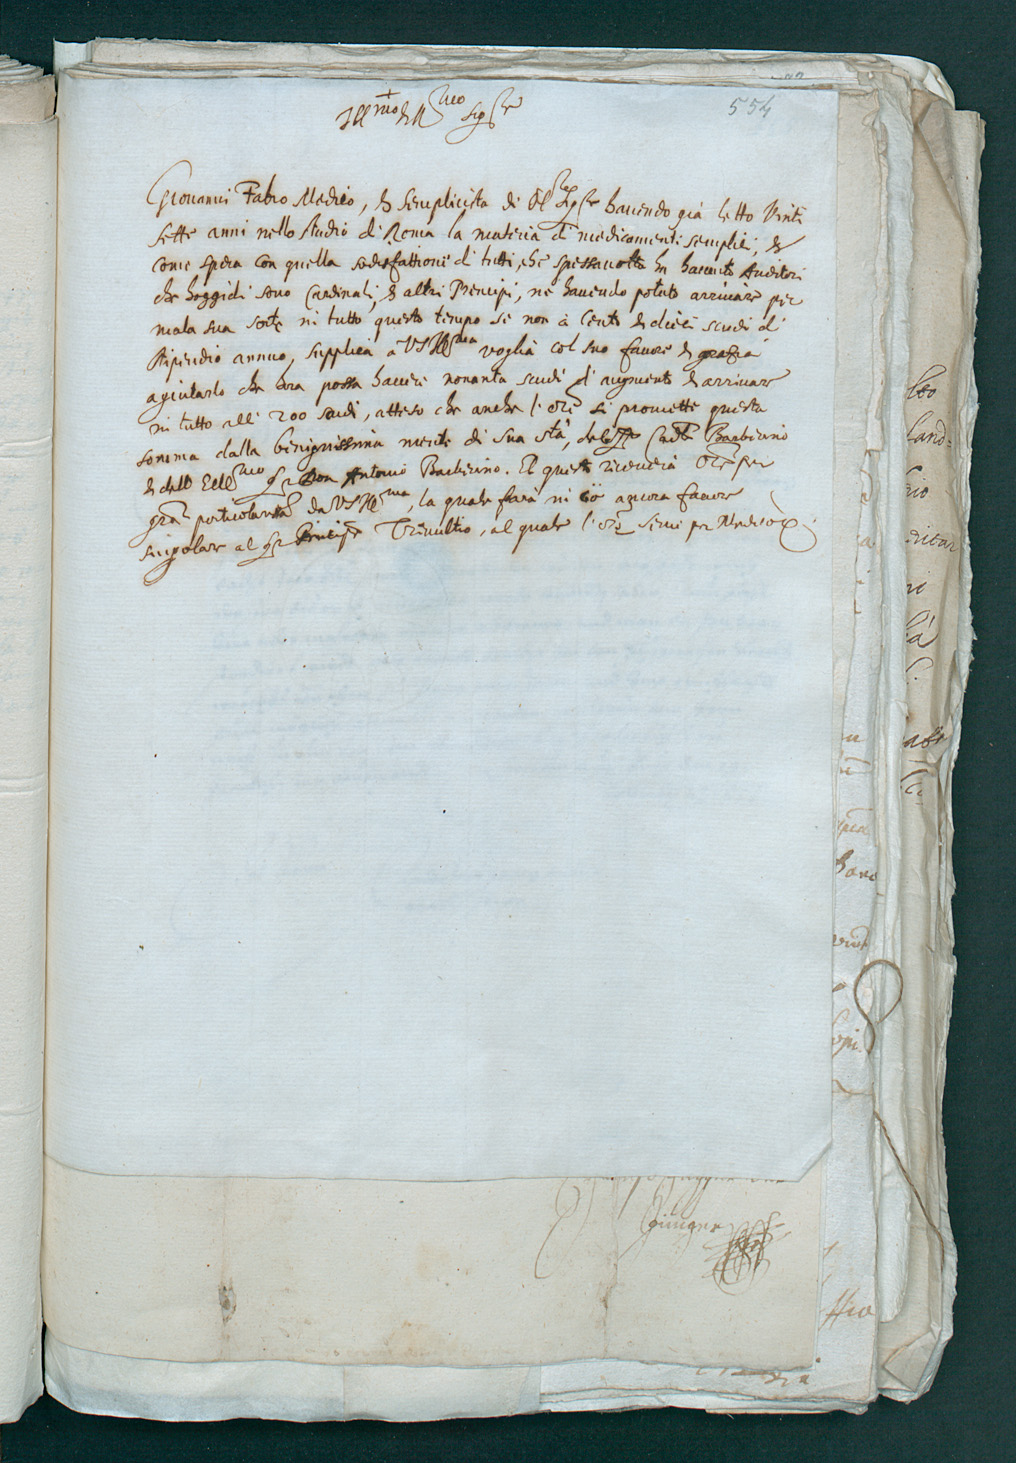 554
Ill.mo et R.mo Sig.re
Giovanni Fabro Medico, et semplicista di N.ro Sig.re havendo già letto Vinti
sette anni nello studio di Roma la materia di medicamenti semplici, et
come spera con quella sodisfattione di tutti, che spessevolte hà havuto Auditori
che hoggidi sono Cardinali, et altri Principi, ne havendo potuto arrivare per
mala sua sorte in tutto questo tempo se non à cento et dieci scudi di
stipendio annuo, supplica a VS Ill.ma voglia col suo favore et gratia
agiutarlo che hora possa havere nonanta scudi d'augmento et arrivare
in tutto alli 200 scudi, atteso che anche l'ore si promette questa
somma dalla benignissima mente di sua stà, del Card. Barberino
et dell' Ecc.mo Sr Don Antonio Barberino. Et questo riceverà Ore per
gra particolariss.a da VS Ill.ma, la quale farà in ciò ancora favore
singolare al Sr Principe Trivultio, al quale l'ore serve per Medico
giugno